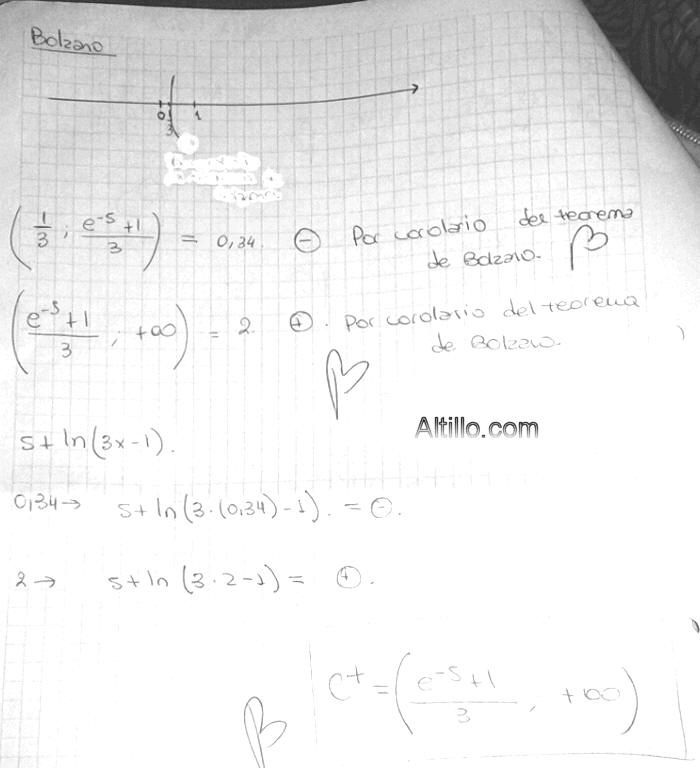 Bolzano
0 1/3 1
(1/3 ; (e^-5 + 1)/3) = 0,34. ⊖ Por corolario del teorema
de Bolzano.
((e^-5 + 1)/3 ; +∞) = 2. ⊕. Por corolario del teorema
de Bolzano.
Altillo.com
5 + ln(3x - 1).
0,34 → 5 + ln(3.(0,34) - 1). = ⊖.
2 → 5 + ln(3.2 - 1) = ⊕.
C⁺ = ((e^-5 + 1)/3 , +∞)